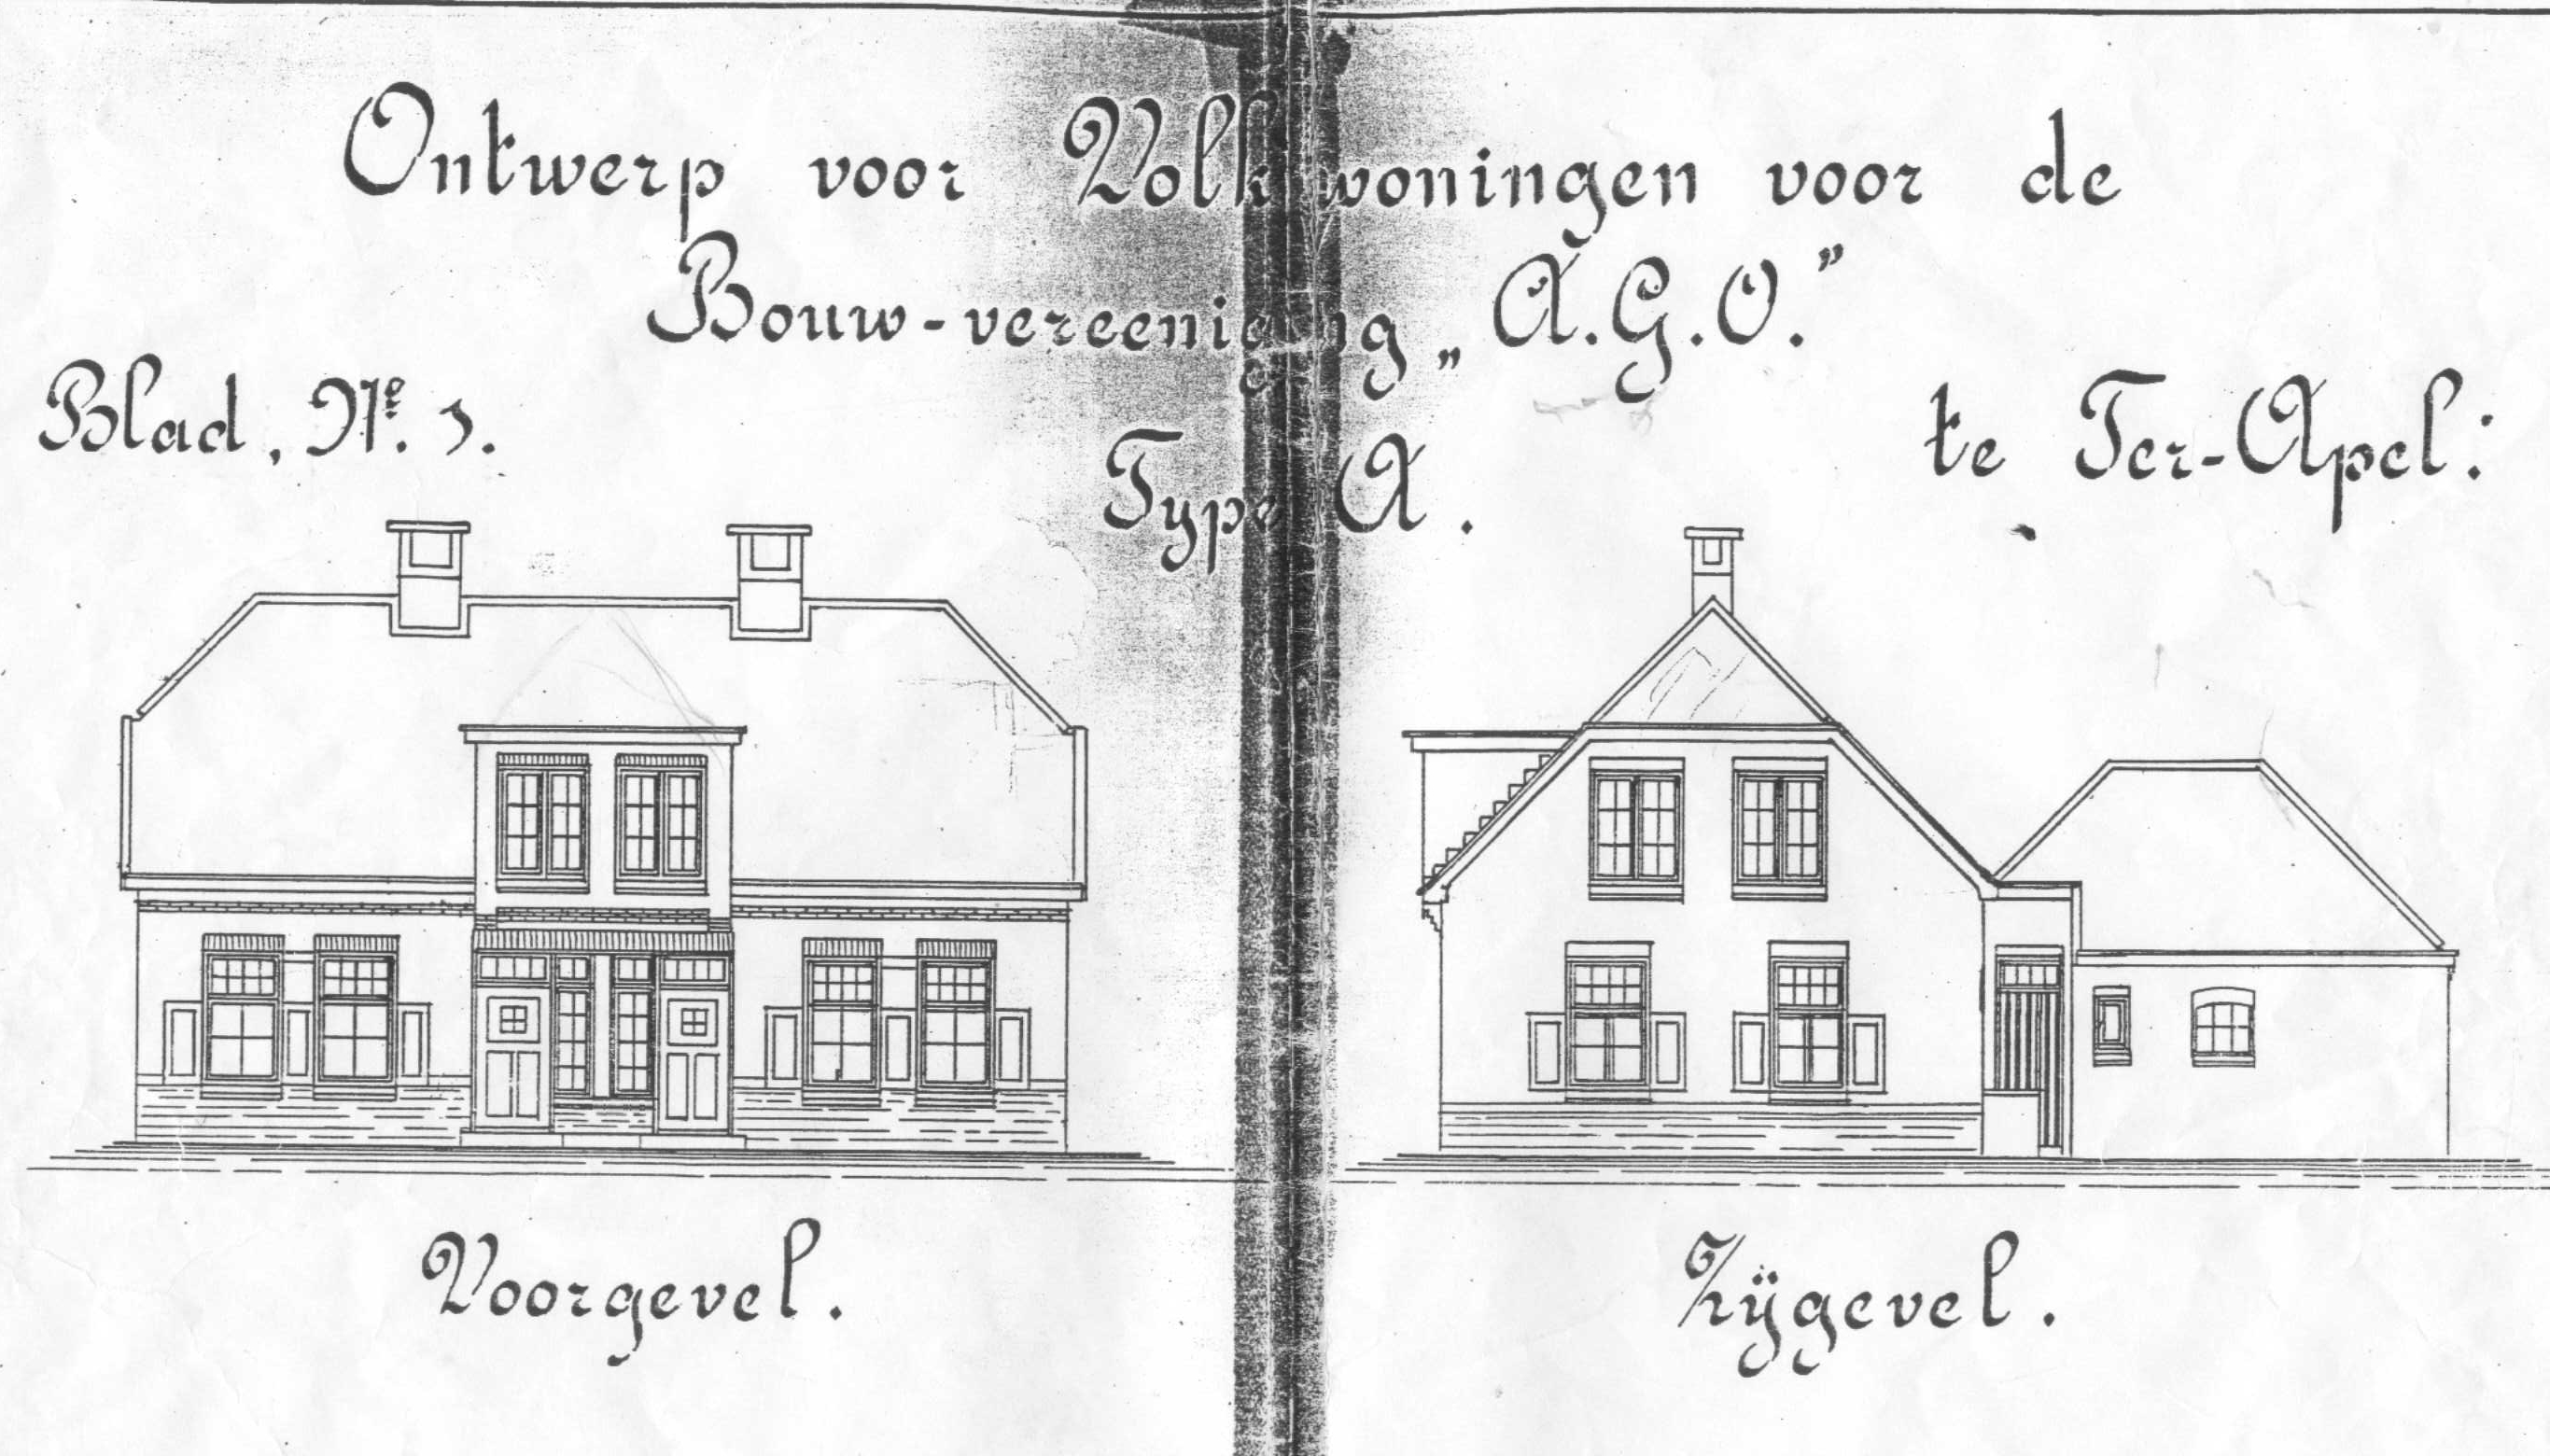 Ontwerp voor Volkswoningen voor de
Bouw-vereeniging „A.G.O.”
Blad. Nº.
te Ter-Apel:
Type A.
Voorgevel.
Zijgevel.